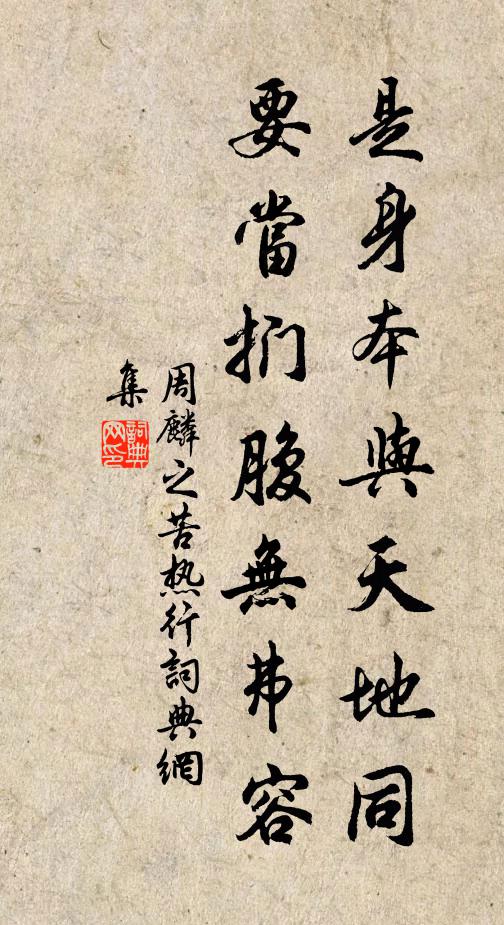 是身本與天地同
要當捫腹無弗容
周麟之苦热行詞典網
集
詞典
网印